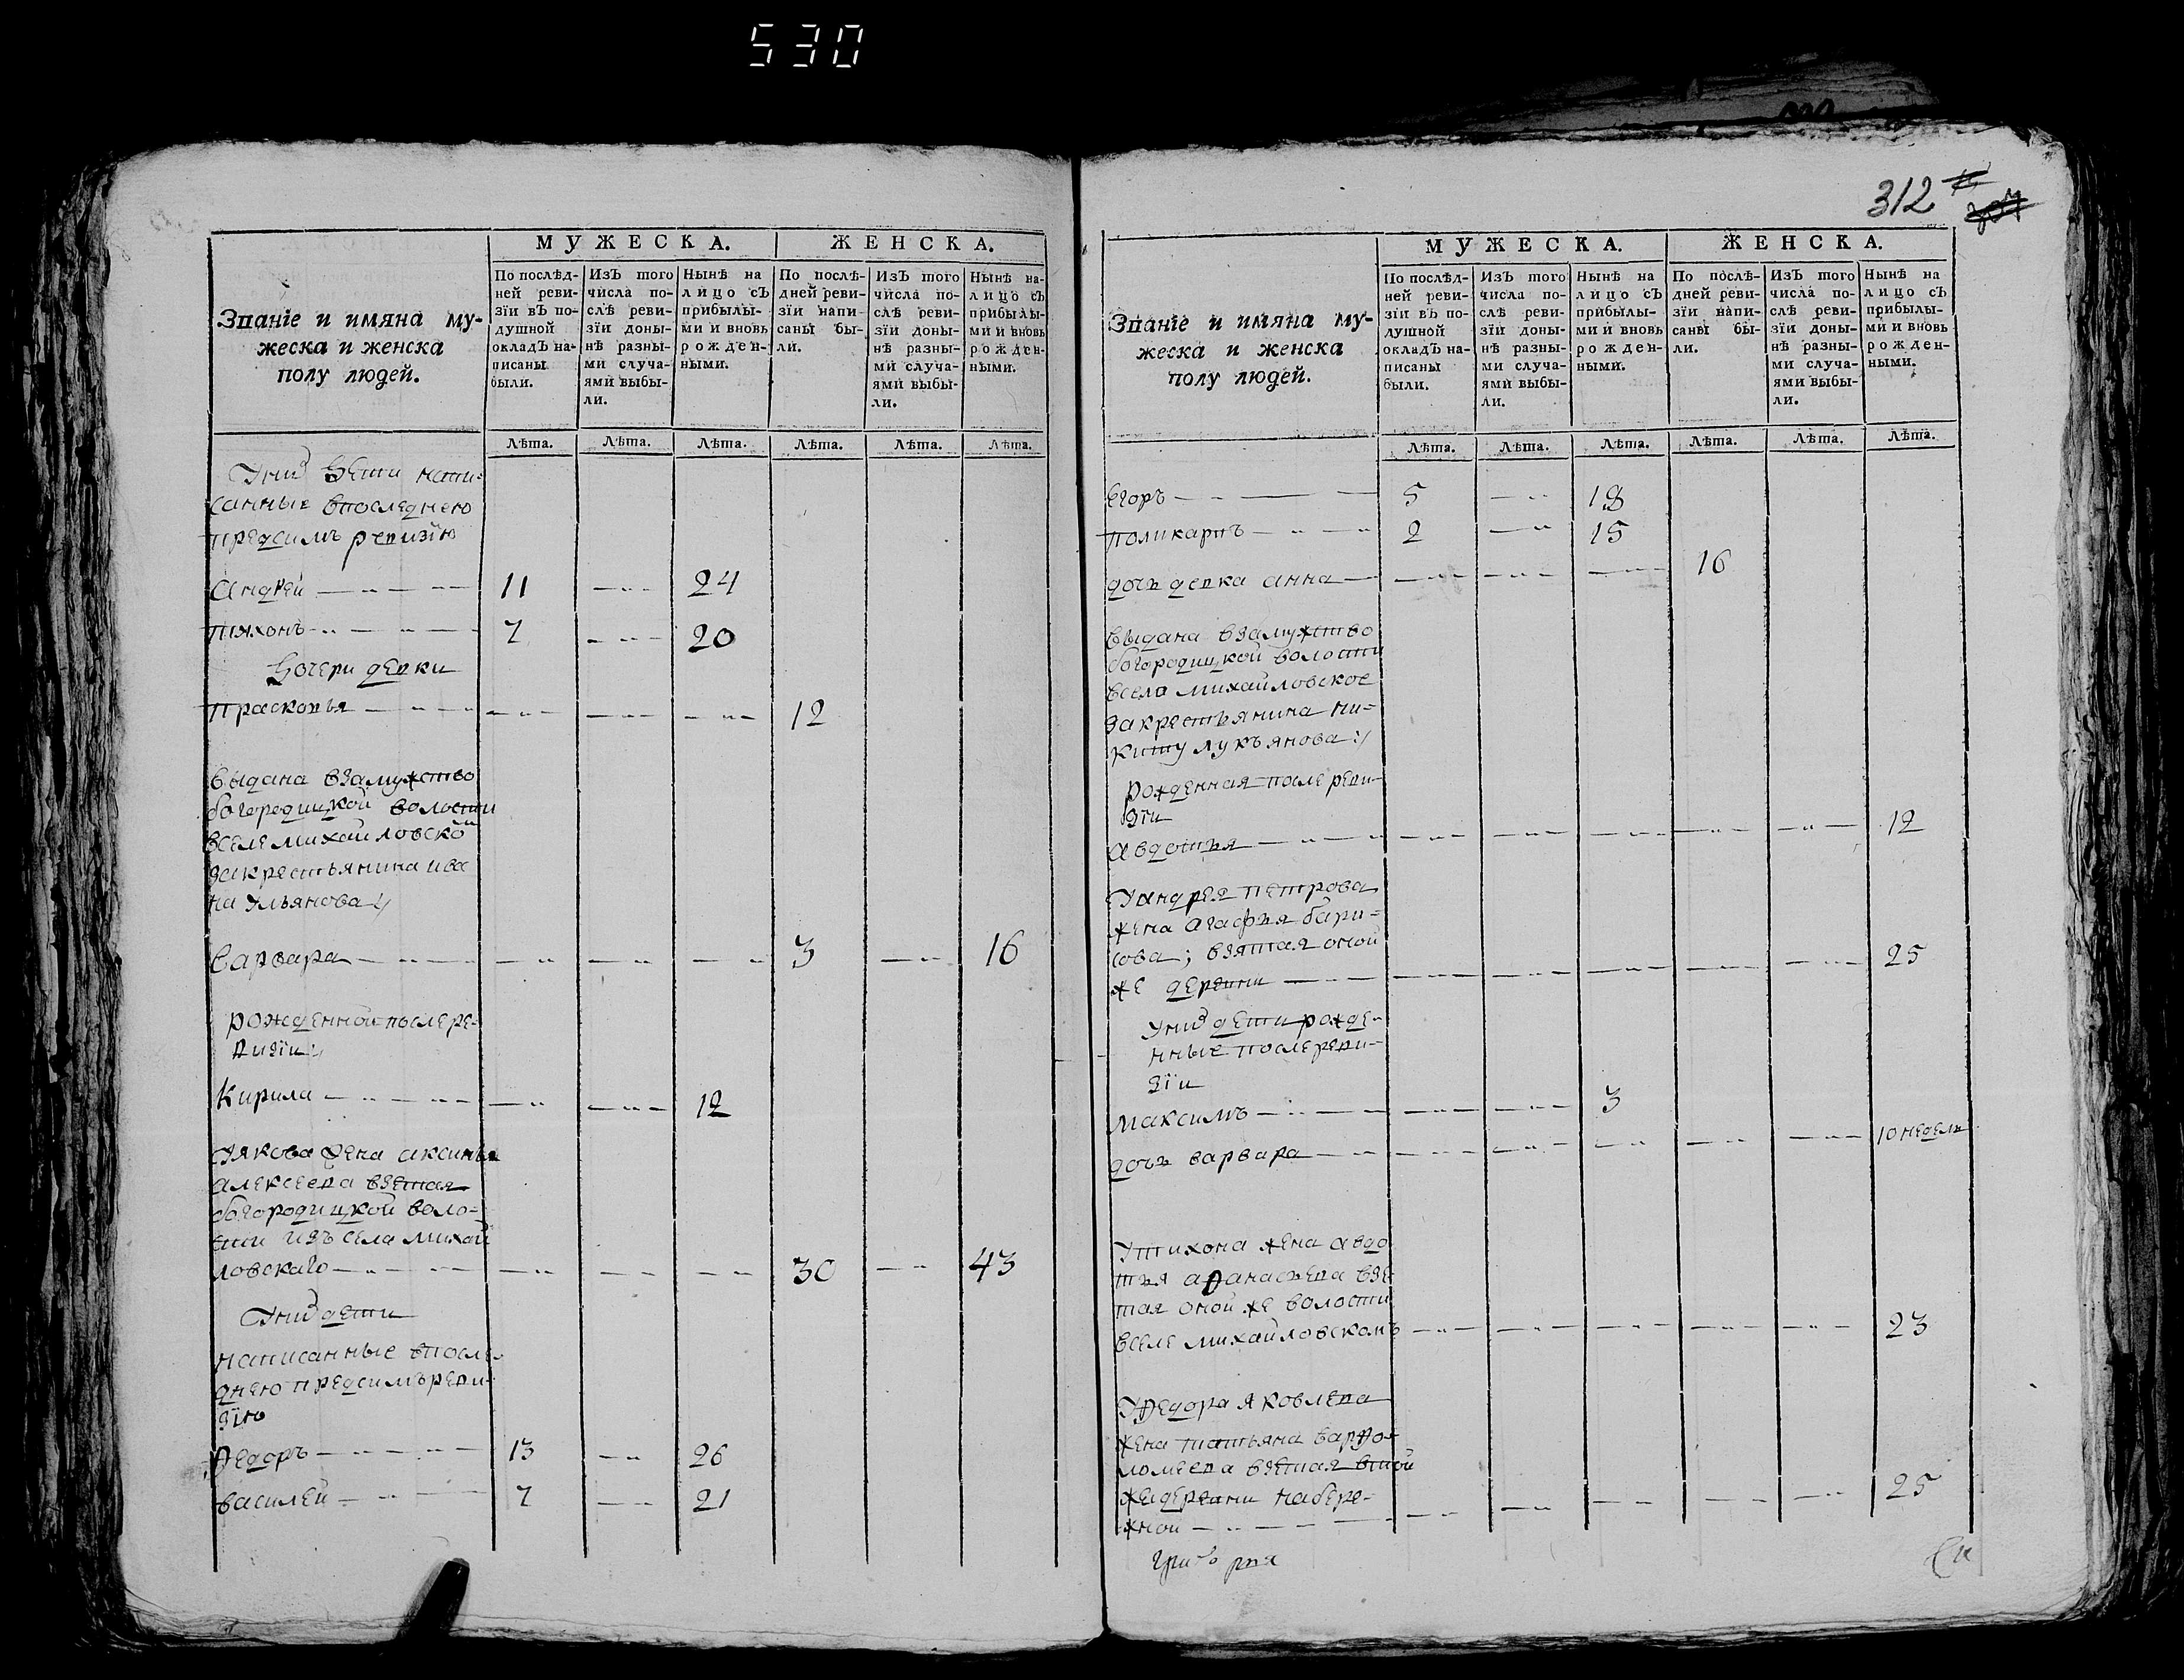 530
312
МУЖЕСКА. ЖЕНСКА.
Званіе и имяна му-
жеска и женска
полу людей.
По послѣд-
ней реви-
зїи въ по-
душной
окладъ на-
писаны
были.
Изъ того
числа по-
слѣ реви-
зїи доны-
нѣ разны-
ми случа-
ями выбы-
ли.
Нынѣ на
лицо съ
прибылы-
ми и вновь
рожден-
ными.
По послѣ-
дней реви-
зїи напи-
саны бы-
ли.
Изъ того
числа по-
слѣ реви-
зїи доны-
нѣ разны-
ми случа-
ями выбы-
ли.
Нынѣ на-
лицо съ
прибылы-
ми и вновь
рожден-
ными.
Лѣта. Лѣта. Лѣта. Лѣта. Лѣта. Лѣта.
Унихъ дети напи-
санные впоследнею
предсимъ ревизїю
андрей 11 24
тихонъ 7 20
дочери девки
прасковья 12
выдана взамужство
богородицкой волости
вселе михайловской
закрестьянина ива
на ульянова
варвара 3 16
рожденной после ре-
визїи
кирила 12
Уякова жена аксинья
алексеева взетая
богородицкой воло-
сти изъ села михай
ловскаго 30 43
Унихъ дети
написанные впосле-
днею предсимъ реви-
зїю
Федоръ 13 26
василей 7 21
МУЖЕСКА. ЖЕНСКА.
Званіе и имяна му-
жеска и женска
полу людей.
По послѣд-
ней реви-
зїи въ по-
душной
окладъ на-
писаны
были.
Изъ того
числа по-
слѣ реви-
зїи доны-
нѣ разны-
ми случа-
ями выбы-
ли.
Нынѣ на
лицо съ
прибылы-
ми и вновь
рожден-
ными.
По послѣ-
дней реви-
зїи напи-
саны бы-
ли.
Изъ того
числа по-
слѣ реви-
зїи доны-
нѣ разны-
ми случа-
ями выбы-
ли.
Нынѣ на
лицо съ
прибылы-
ми и вновь
рожден-
ными.
Лѣта. Лѣта. Лѣта. Лѣта. Лѣта. Лѣта.
егоръ 5 18
поликарпъ 2 15
дочь девка анна 16
выдана взамужство
богородицкой волости
всело михайловское
закрестьянина ни-
киту лукъянова
рожденная после реви-
зїи
авдотья 12
Уандрея петрова
жена агафья бари-
сова; взятая оной
же деревни 25
Унихъ дети рожде-
нные после реви-
зїи
максимъ 3
дочь варвара 10 недель
Утихона жена авдо
тья афанасьева взе-
тая оной же волости
вселе михайловскомъ 23
Уфедора яковлева
жена татьяна варфо-
ломеева взетая втой
же деревни набере-
жной 25
григорья